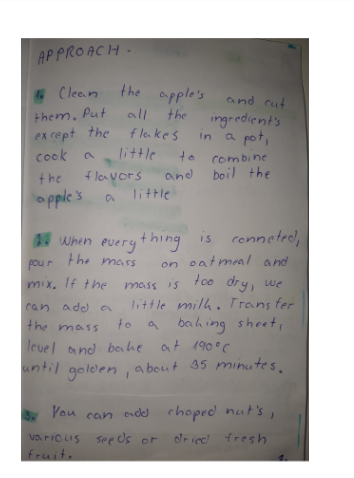 APPROACH.
1. Clean the apple's and cut
them. Put all the ingredient's
except the flakes in a pot,
cook a little to combine
the flavors and boil the
apple's a little
2. When everything is conneted,
pour the mass on oatmeal and
mix. If the mass is too dry, we
can add a little milk. Transfer
the mass to a baking sheet,
level and bake at 190°C
until golden, about 35 minutes.
3. You can add choped nut's,
various seeds or dried fresh
fruit.